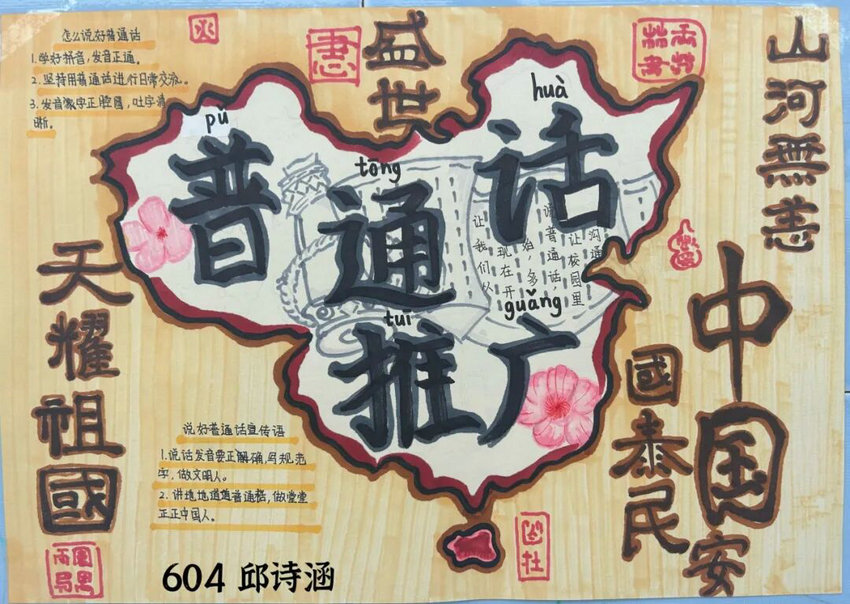 怎么说好普通话
1.学好拼音,发音正通。
2.坚持用普通话进行日常交流。
3.发音教字正腔圆,吐字清
晰。
盛世
山河無恙
pǔ
普
tōng
通
huà
话
tuī
推
guǎng
广
让我们从
现在开
始,多
说普通话,
让校园里
沟通
天耀祖國
中国
國泰民安
说好普通话宣传语
1.说话发音要正确,写规范
字,做文明人。
2.讲地地道道普通话,做堂堂
正正中国人。
604 邱诗涵